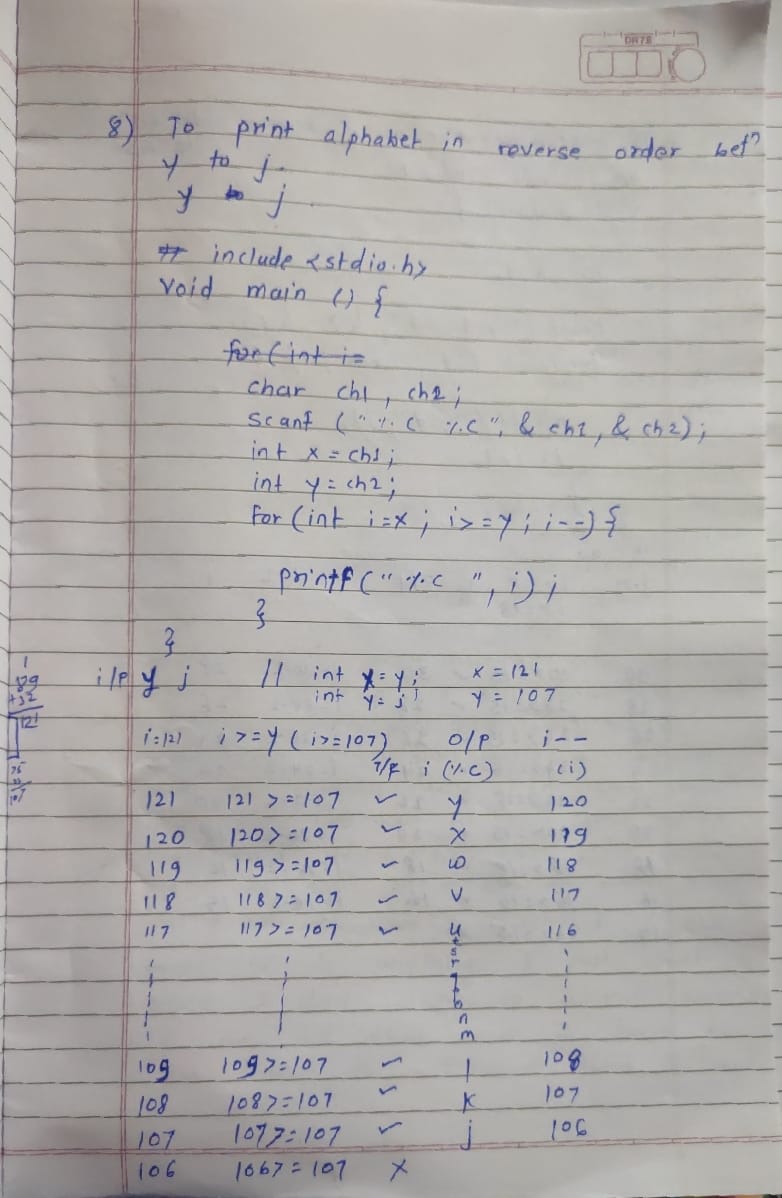 DATE
8) To print alphabet in reverse order betn
y to j.
y to j.
# include <stdio.h>
void main () {
for (int i=
char ch1, ch2;
scanf ("%c %c", & ch1, & ch2);
int x = ch1;
int y = ch2;
for (int i=x; i>=y; i--) {
printf ("%c ", i);
}
}
i/p y j // int x=y; x = 121
int y=j; y = 107
i=121 i>=y (i>=107) O/P i--
T/F i (%c) (i)
121 121 >= 107 ✓ y 120
120 120>=107 ✓ x 119
119 119>=107 ✓ w 118
118 118>=107 ✓ v 117
117 117>=107 ✓ u 116
t
s
r
q
p
o
n
m
109 109>=107 ✓ l 108
108 108>=107 ✓ k 107
107 107>=107 ✓ j 106
106 106>=107 ×